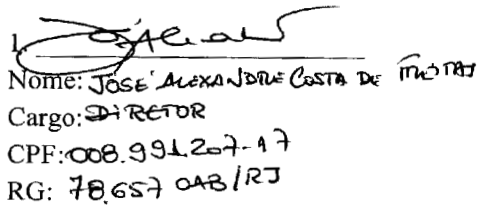 1.
Nome: JOSÉ ALEXANDRE COSTA DE
Cargo: DIRETOR
CPF: 008.991.207-17
RG: 78.657 OAB/RJ